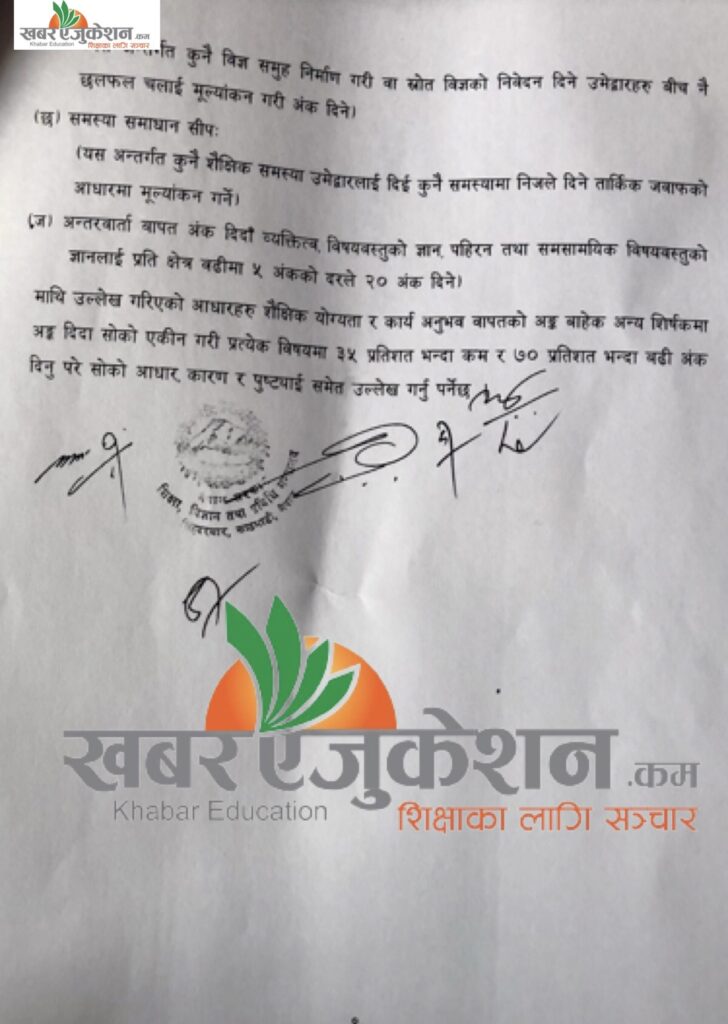 खबर एजुकेशन.कम
Khabar Education शिक्षाका लागि सञ्चार
अन्तर्गत कुनै विज्ञ समुह निर्माण गरी वा स्रोत विज्ञको निवेदन दिने उमेद्वारहरु बीच नै
छलफल चलाई मूल्यांकन गरी अंक दिने।)
(छ) समस्या समाधान सीपः
(यस अन्तर्गत कुनै शैक्षिक समस्या उमेद्वारलाई दिई कुनै समस्यामा निजले दिने तार्किक जवाफको
आधारमा मूल्यांकन गर्ने।)
(ज) अन्तरवार्ता वापत अंक दिदाँ व्यक्तित्व, विषयवस्तुको ज्ञान, पहिरन तथा समसामयिक विषयवस्तुको
ज्ञानलाई प्रति क्षेत्र बढीमा ५ अंकको दरले २० अंक दिने।)
माथि उल्लेख गरिएको आधारहरु शैक्षिक योग्यता र कार्य अनुभव वापतको अङ्क बाहेक अन्य शिर्षकमा
अङ्क दिदा सोको एकीन गरी प्रत्येक विषयमा ३५ प्रतिशत भन्दा कम र ७० प्रतिशत भन्दा बढी अंक
दिनु परे सोको आधार, कारण र पुष्ट्याई समेत उल्लेख गर्नु पर्नेछ
शिक्षा, विज्ञान तथा प्रविधि
खबर एजुकेशन.कम
Khabar Education शिक्षाका लागि सञ्चार